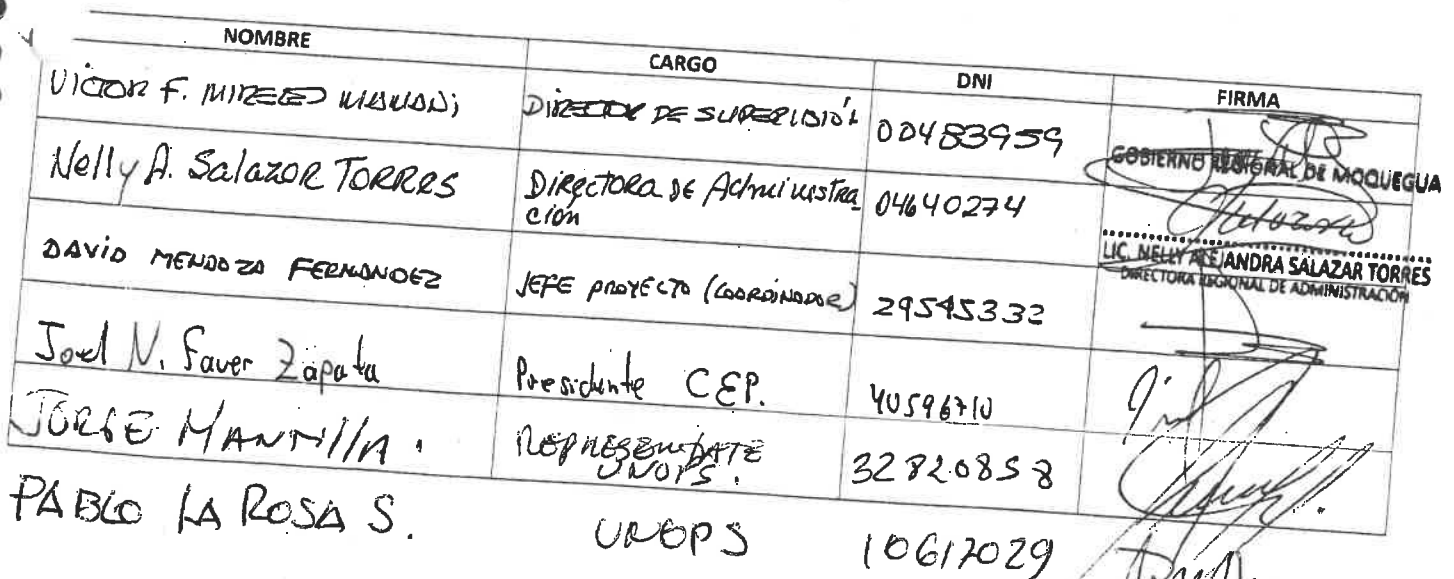 NOMBRE CARGO DNI FIRMA
VICTOR F. MIREED MAMANi DIRECTOR DE SUPERVISIÓN 00483959
GOBIERNO REGIONAL DE MOQUEGUA
Nelly A. Salazar TORRES DIRECTORA DE Administra_ 04640274
ción
LIC. NELLY ALEJANDRA SALAZAR TORRES
DIRECTORA REGIONAL DE ADMINISTRACIÓN
DAViD MENDOZA FERNANDEZ JEFE PROYECTO (COORDINADOR) 29545332
Joel V. Faver Zapata Presidente CEP. 40596710
JORGE MANTilla. REPRESENTATE 32820858
UNOPS.
PABLO LA ROSA S. UNOPS 10617029